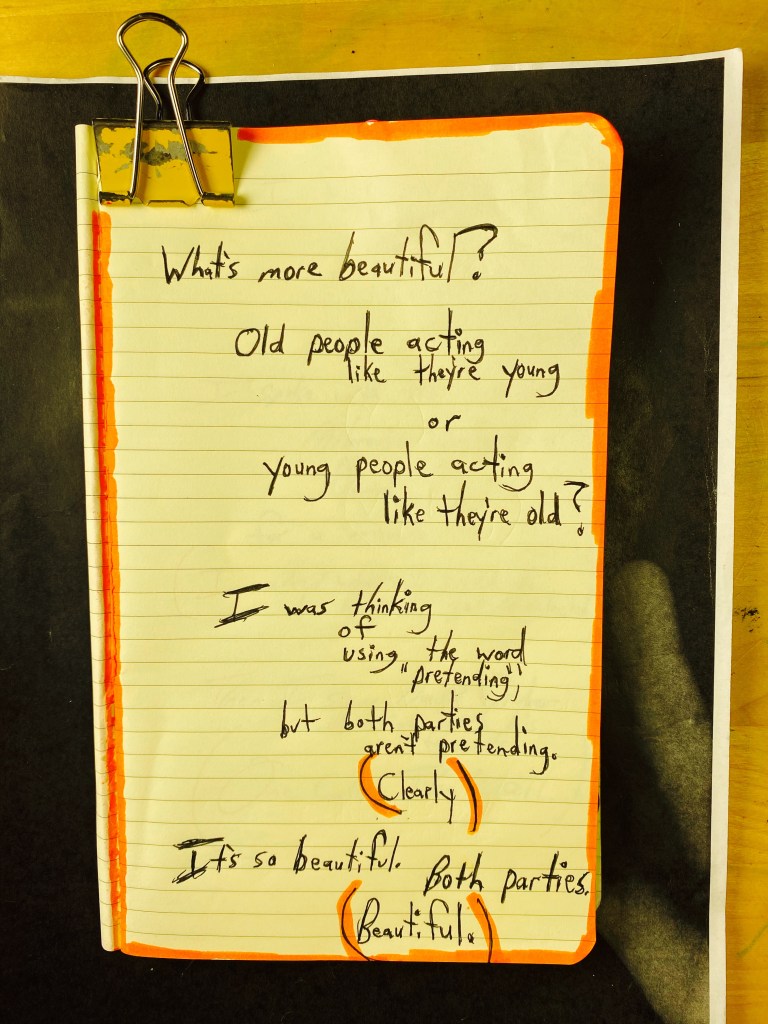 What's more beautiful?
Old people acting
like they're young
or
young people acting
like they're old?
I was thinking
of
using the word
"pretending",
but both parties
aren't pretending.
(Clearly)
It's so beautiful.
Both parties.
(Beautiful.)